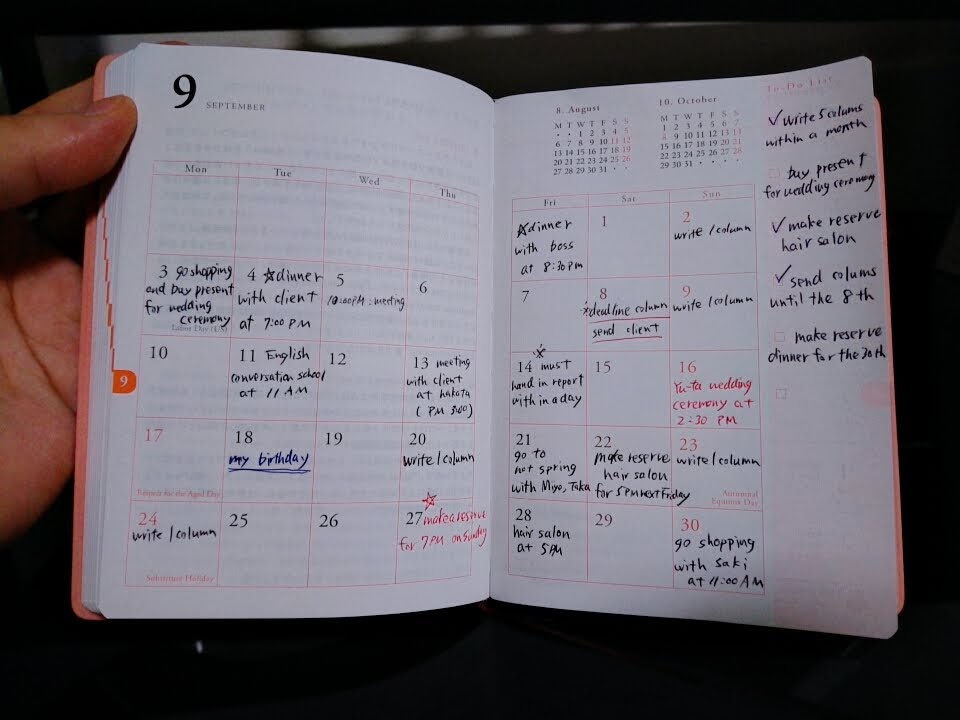 9 SEPTEMBER
Mon Tue Wed Thu
3 go shopping
and buy present
for wedding
ceremony
Labor Day (US)
4 ☆dinner
with client
at 7:00 PM
5
10:00PM : meeting
6
10
11 English
conversation school
at 11 AM
12
13 meeting
with client
at hakata
( PM 5:00)
17
Respect for the Aged Day
18
my birthday
19
20
write 1 column
24
write 1 column
Substitute Holiday
25
26
27 make a reserve
for 7PM on Sunday
9
8. August
M T W T F S S
• • 1 2 3 4 5
6 7 8 9 10 11 12
13 14 15 16 17 18 19
20 21 22 23 24 25 26
27 28 29 30 31 • •
10. October
M T W T F S S
1 2 3 4 5 6 7
8 9 10 11 12 13 14
15 16 17 18 19 20 21
22 23 24 25 26 27 28
29 30 31 • • • •
Fri Sat Sun
☆dinner
with boss
at 8:30pm
1
2
write 1 column
7
8
☆deadline column
send client
9
write 1 column
14 must
hand in report
with in a day
15
16
Yu-ta wedding
ceremony at
2:30 PM
21
go to
hot spring
with Miyo, Taka
22
make reserve
hair salon
for 5PM next Friday
23
write 1 column
Autumnal
Equinox Day
28
hair salon
at 5PM
29
30
go shopping
with Saki
at 11:00 AM
To-Do List
✓ write 5 colums
within a month
□ buy present
for wedding ceremony
✓ make reserve
hair salon
✓ send colums
until the 8th
□ make reserve
dinner for the 30th